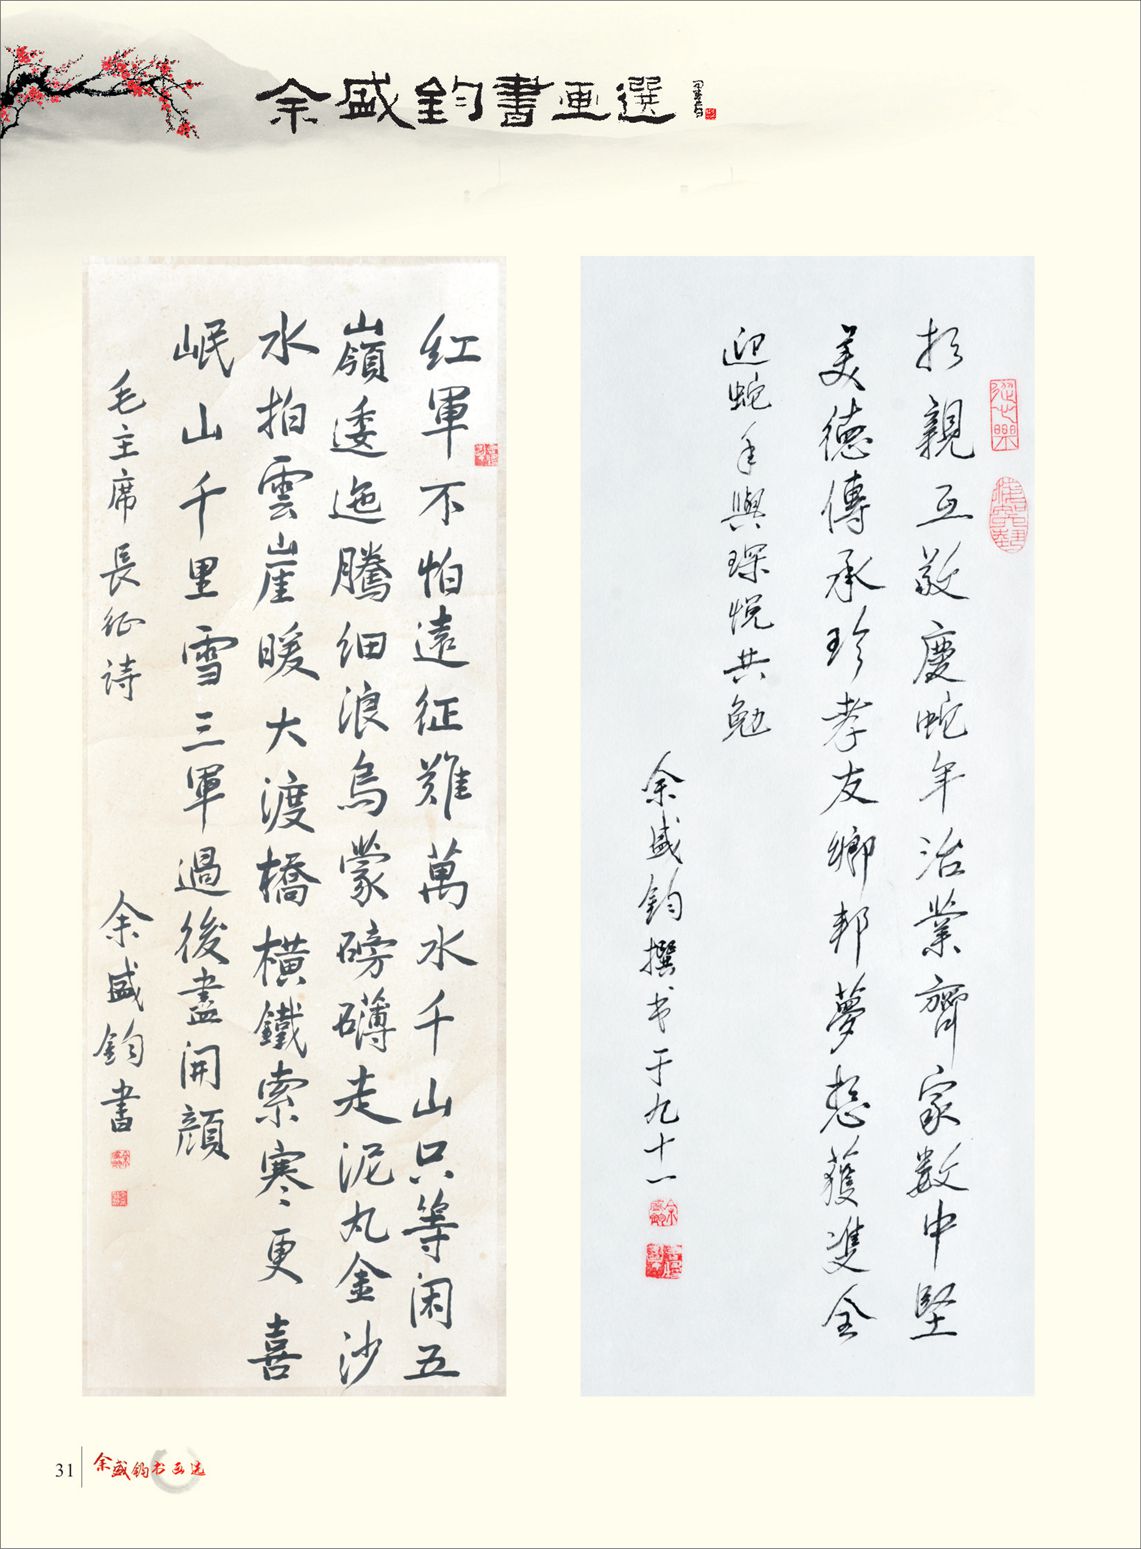 余盛鈞書画選
親互敬慶蛇年治業齊家数中堅
美德傳承珍孝友鄉邦夢想獲雙全
迎蛇年與琛悦共勉
余盛鈞撰书于九十一
红軍不怕遠征難萬水千山只等闲五
嶺逶迤騰细浪烏蒙磅礴走泥丸金沙
水拍雲崖暖大渡橋横鐵索寒更喜
岷山千里雪三軍過後盡開顔
毛主席長征詩 余盛鈞書
31 余盛钧书画选